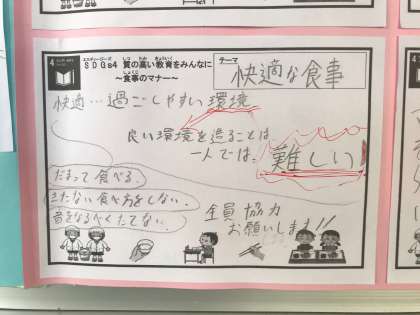 4
SDGs4 質の高い教育をみんなに
エスディージーズ しつ たか きょういく
～食事のマナー～
しょくじ
テーマ
快適な食事
快適…過ごしやすい環境
良い環境を造ることは
一人では、難しい
だまって食べる。
きたない食べ方をしない。
音をなるべくたてない。
全員協力
お願いします!!